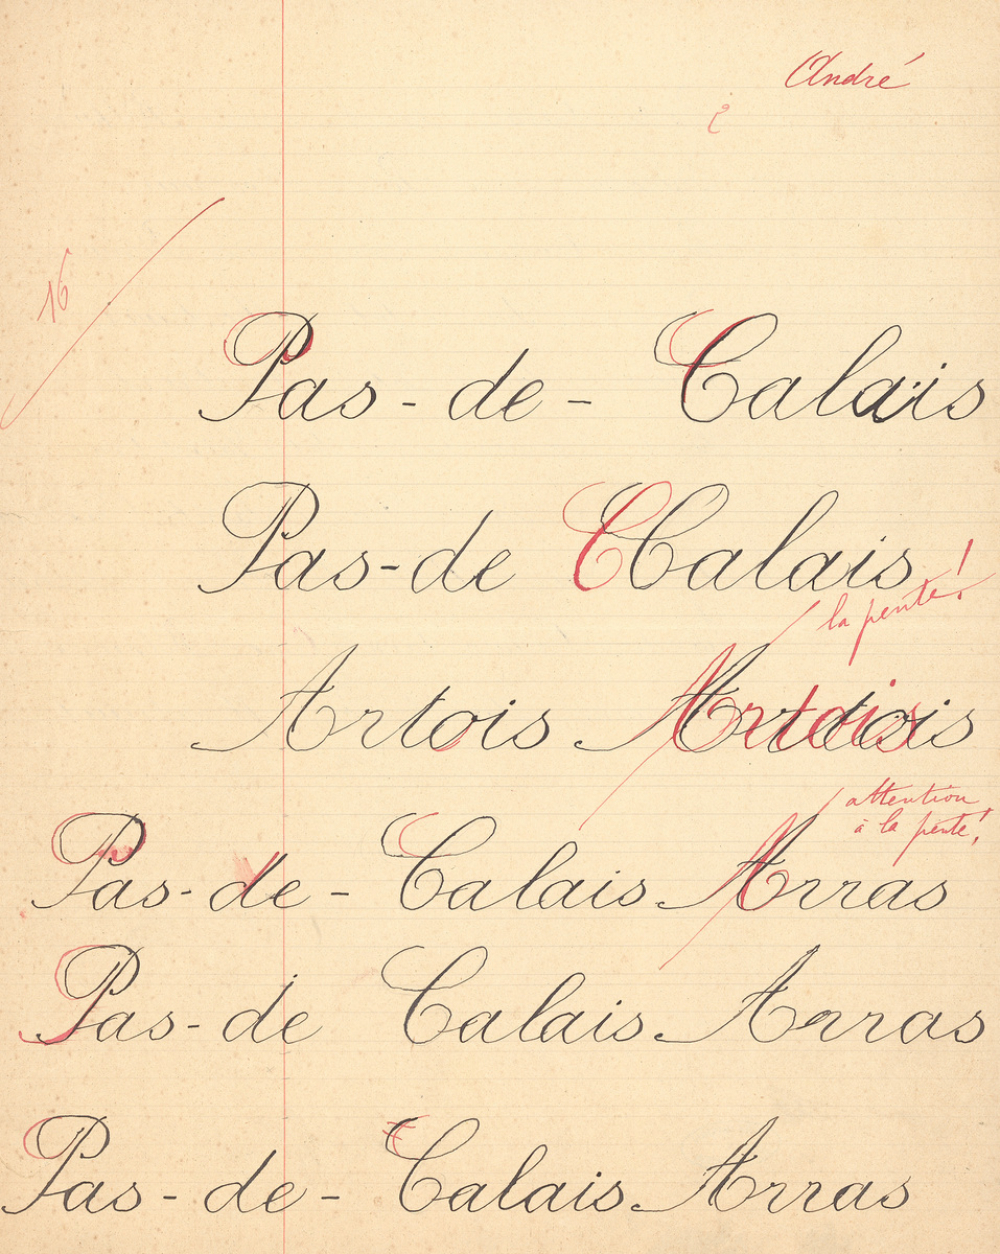 André
16
Pas-de-Calais
Pas-de CCalais
la pente!
Artois Artois
attention
à la pente!
Pas-de-Calais Arras
Pas-de Calais Arras
Pas-de-Calais Arras